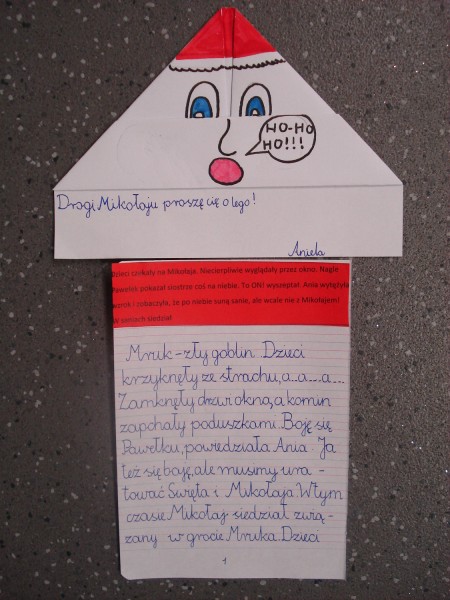 HO-HO
HO!!!
Drogi Mikołaju proszę cię o lego!
Aniela
Dzieci czekały na Mikołaja. Niecierpliwie wyglądały przez okno. Nagle
Pawełek pokazał siostrze coś na niebie. To ON! wyszeptał. Ania wytężyła
wzrok i zobaczyła, że po niebie suną sanie, ale wcale nie z Mikołajem!
W saniach siedział
Mruk-zły goblin. Dzieci
krzyknęły ze strachu, a...a....a...
Zamknęły drzwi okna, a komin
zapchały poduszkami. Boję się
Pawełku, powiedziała Ania. Ja
też się boję, ale musimy ura-
tować Święta i Mikołaja. W tym
czasie Mikołaj siedział zwią-
zany w grocie Mruka. Dzieci
1